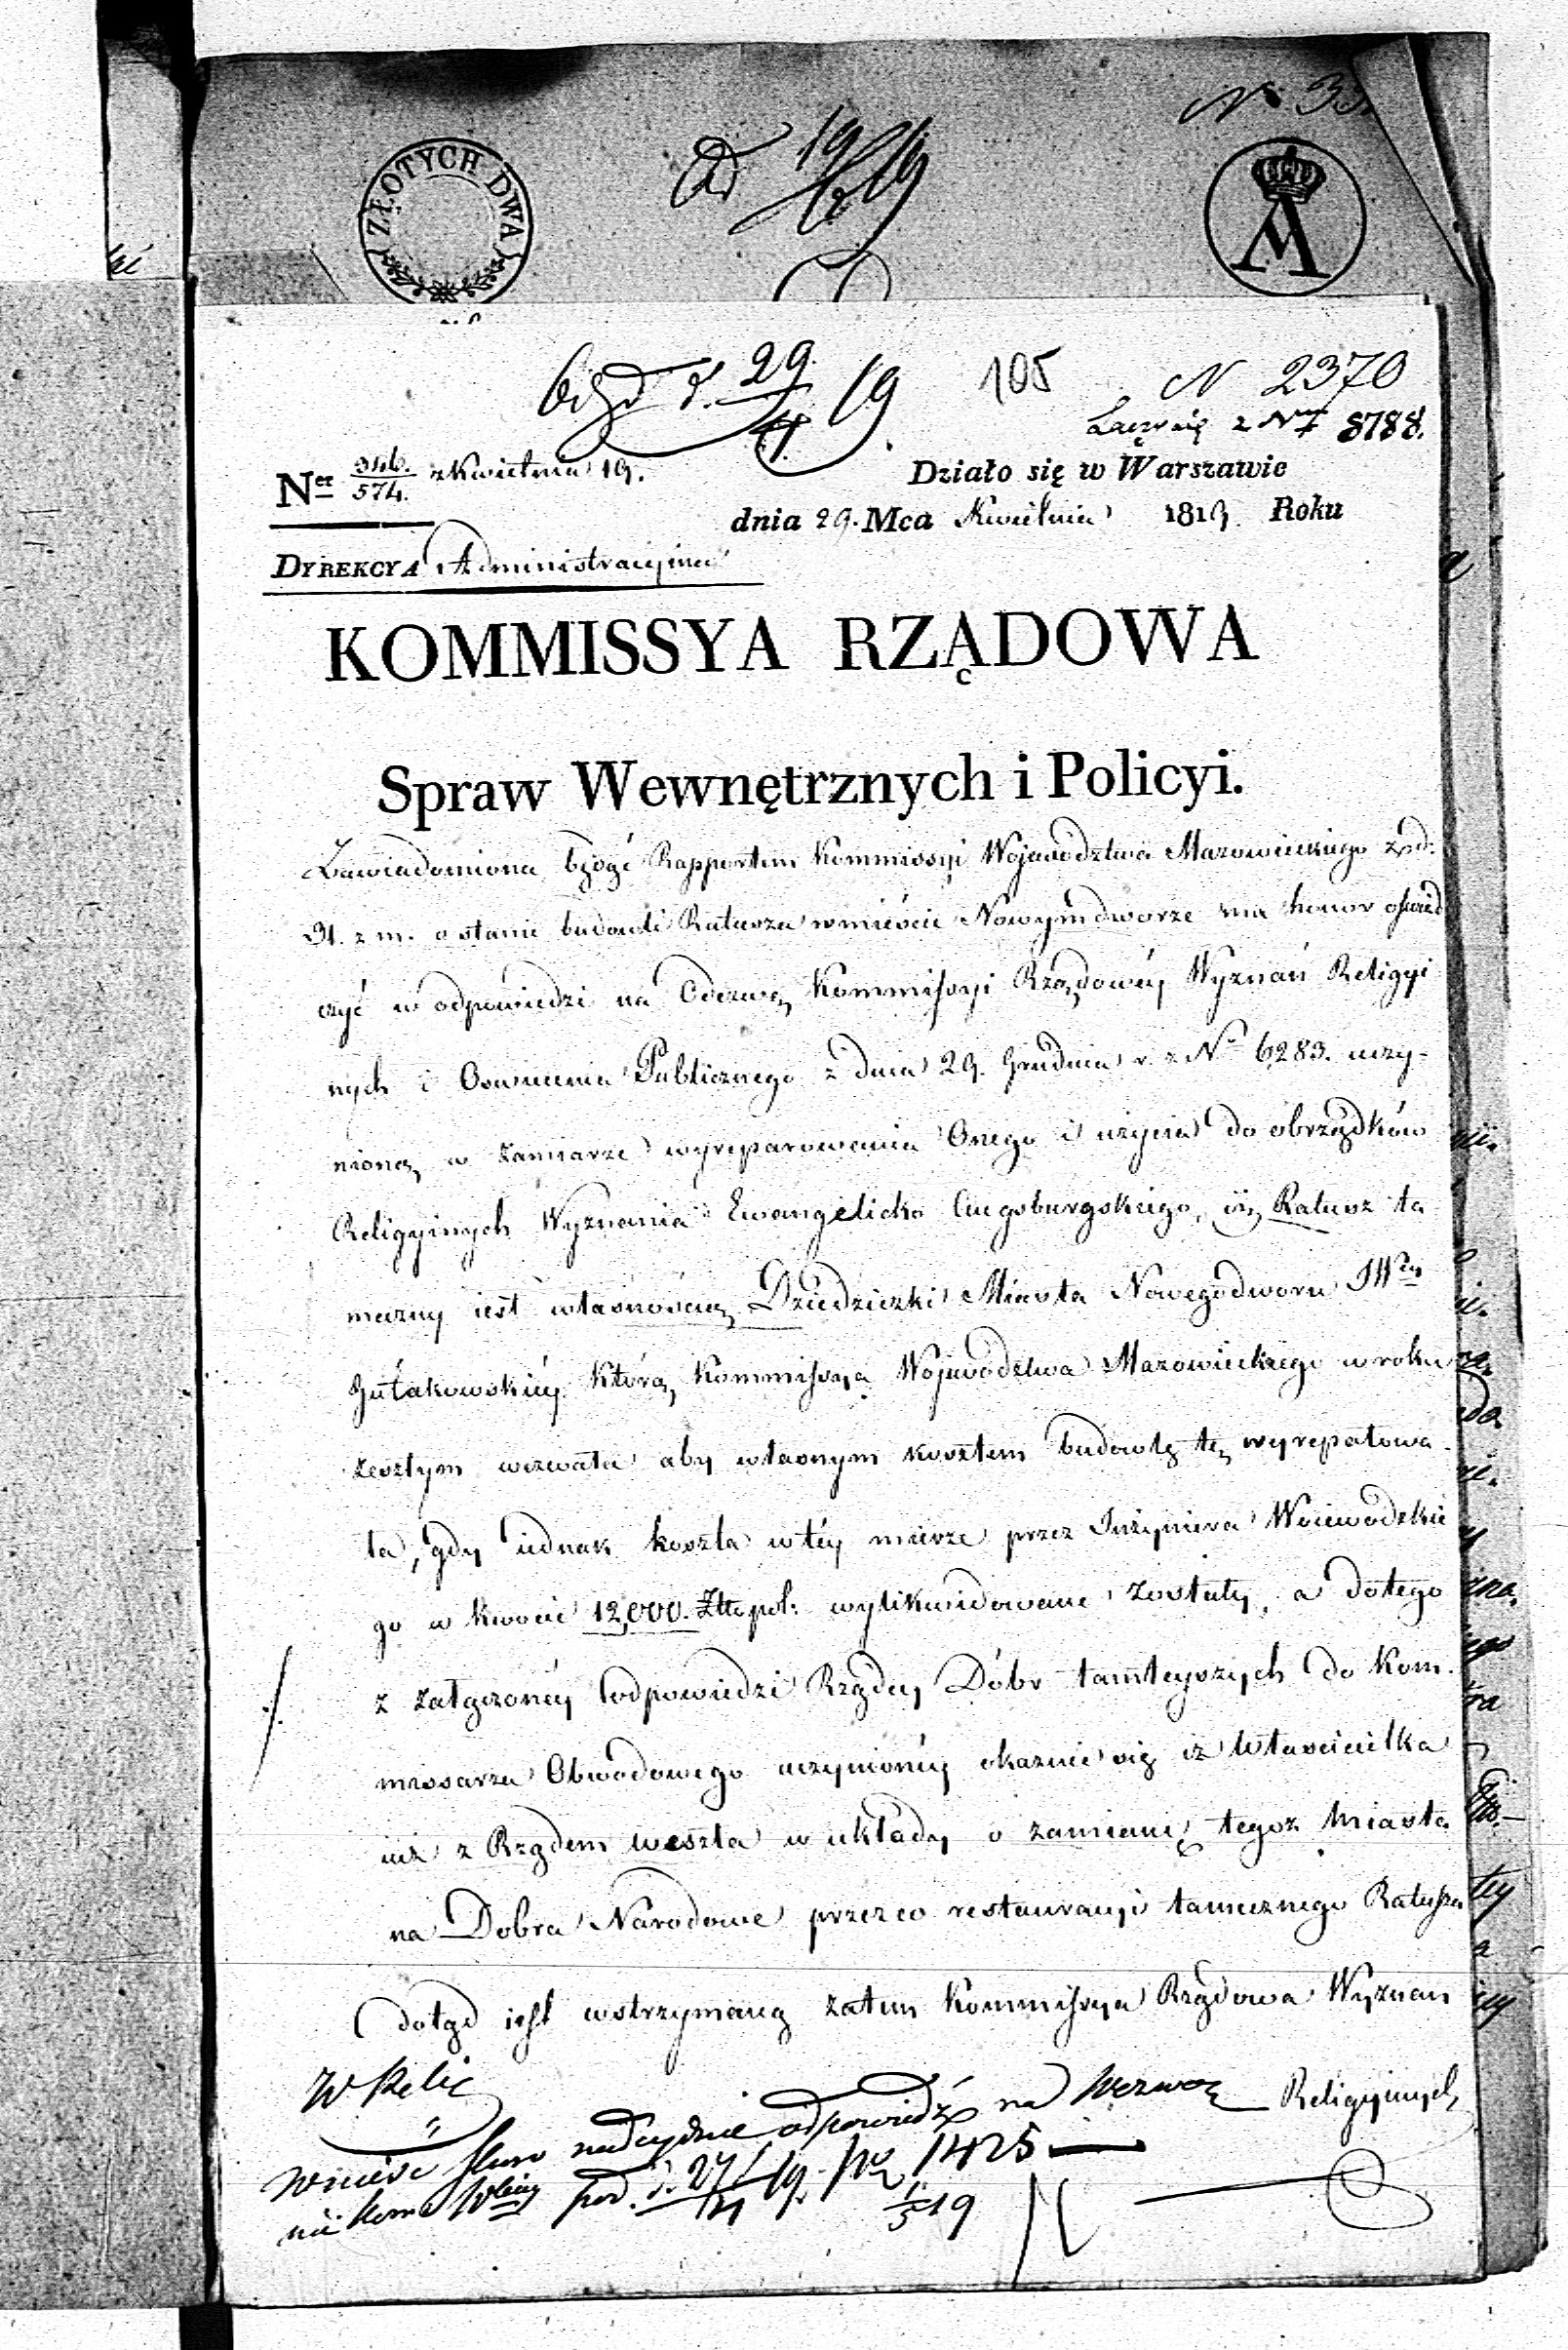 N 33
ZŁOTYCH DWA
A
105
N 2370
Łączy się z Nrem 8788.
Ner 346./574. z Kwietnia 19.
Działo się w Warszawie
dnia 29. Mca Kwietnia 1819 Roku
DYREKCYA Administracyina
KOMMISSYA RZĄDOWA
Spraw Wewnętrznych i Policyi.
Zawiadomiona będąc Rapportem Kommissyi Wojewodztwa Mazowieckiego
o stanie budowli Ratusza w mieście Nowymdworze ma honor oświad
czyć w odpowiedzi na Odezwę Kommissyi Rządowéy Wyznań Religyi
nych i Oświecenia Publicznego z dnia 29. Grudnia r. z No 6283. uczy-
nioną w zamiarze wyreparowania Onego i użycia do obrządków
Religyinych Wyznania Ewangelicko Augsburgskiego, iż Ratusz ta
meczny iest własnością Dziedziczki Miasta Nowegodworu JWéy
Gutakowskiéy którą Kommissya Wojewodztwa Mazowieckiego w roku
zeszłym wezwała aby własnym kosztem budowlę tę wyreparowa-
ła, gdy iednak koszta w téy mierze przez Inżyniera Woiewodzkie
go w kwocie 12,000. Złłp pol: wylikwidowane zostały, a do tego
z załączonéy odpowiedzi Rządcy Dóbr tamteyszych do Kom-
missarza Obwodowego uczynionéy okazuie się iż Właścicielka
iuż z Rządem weszła w układy o zamianę tegoż Miasta
na Dobra Narodowe przez co restauracyi tamecznego Ratusza
dotąd iest wstrzymaną zatem Kommissya Rządowa Wyznań
Religyinych
nadeydzie odpowiedź na Wezwa
nie Kom: 1425